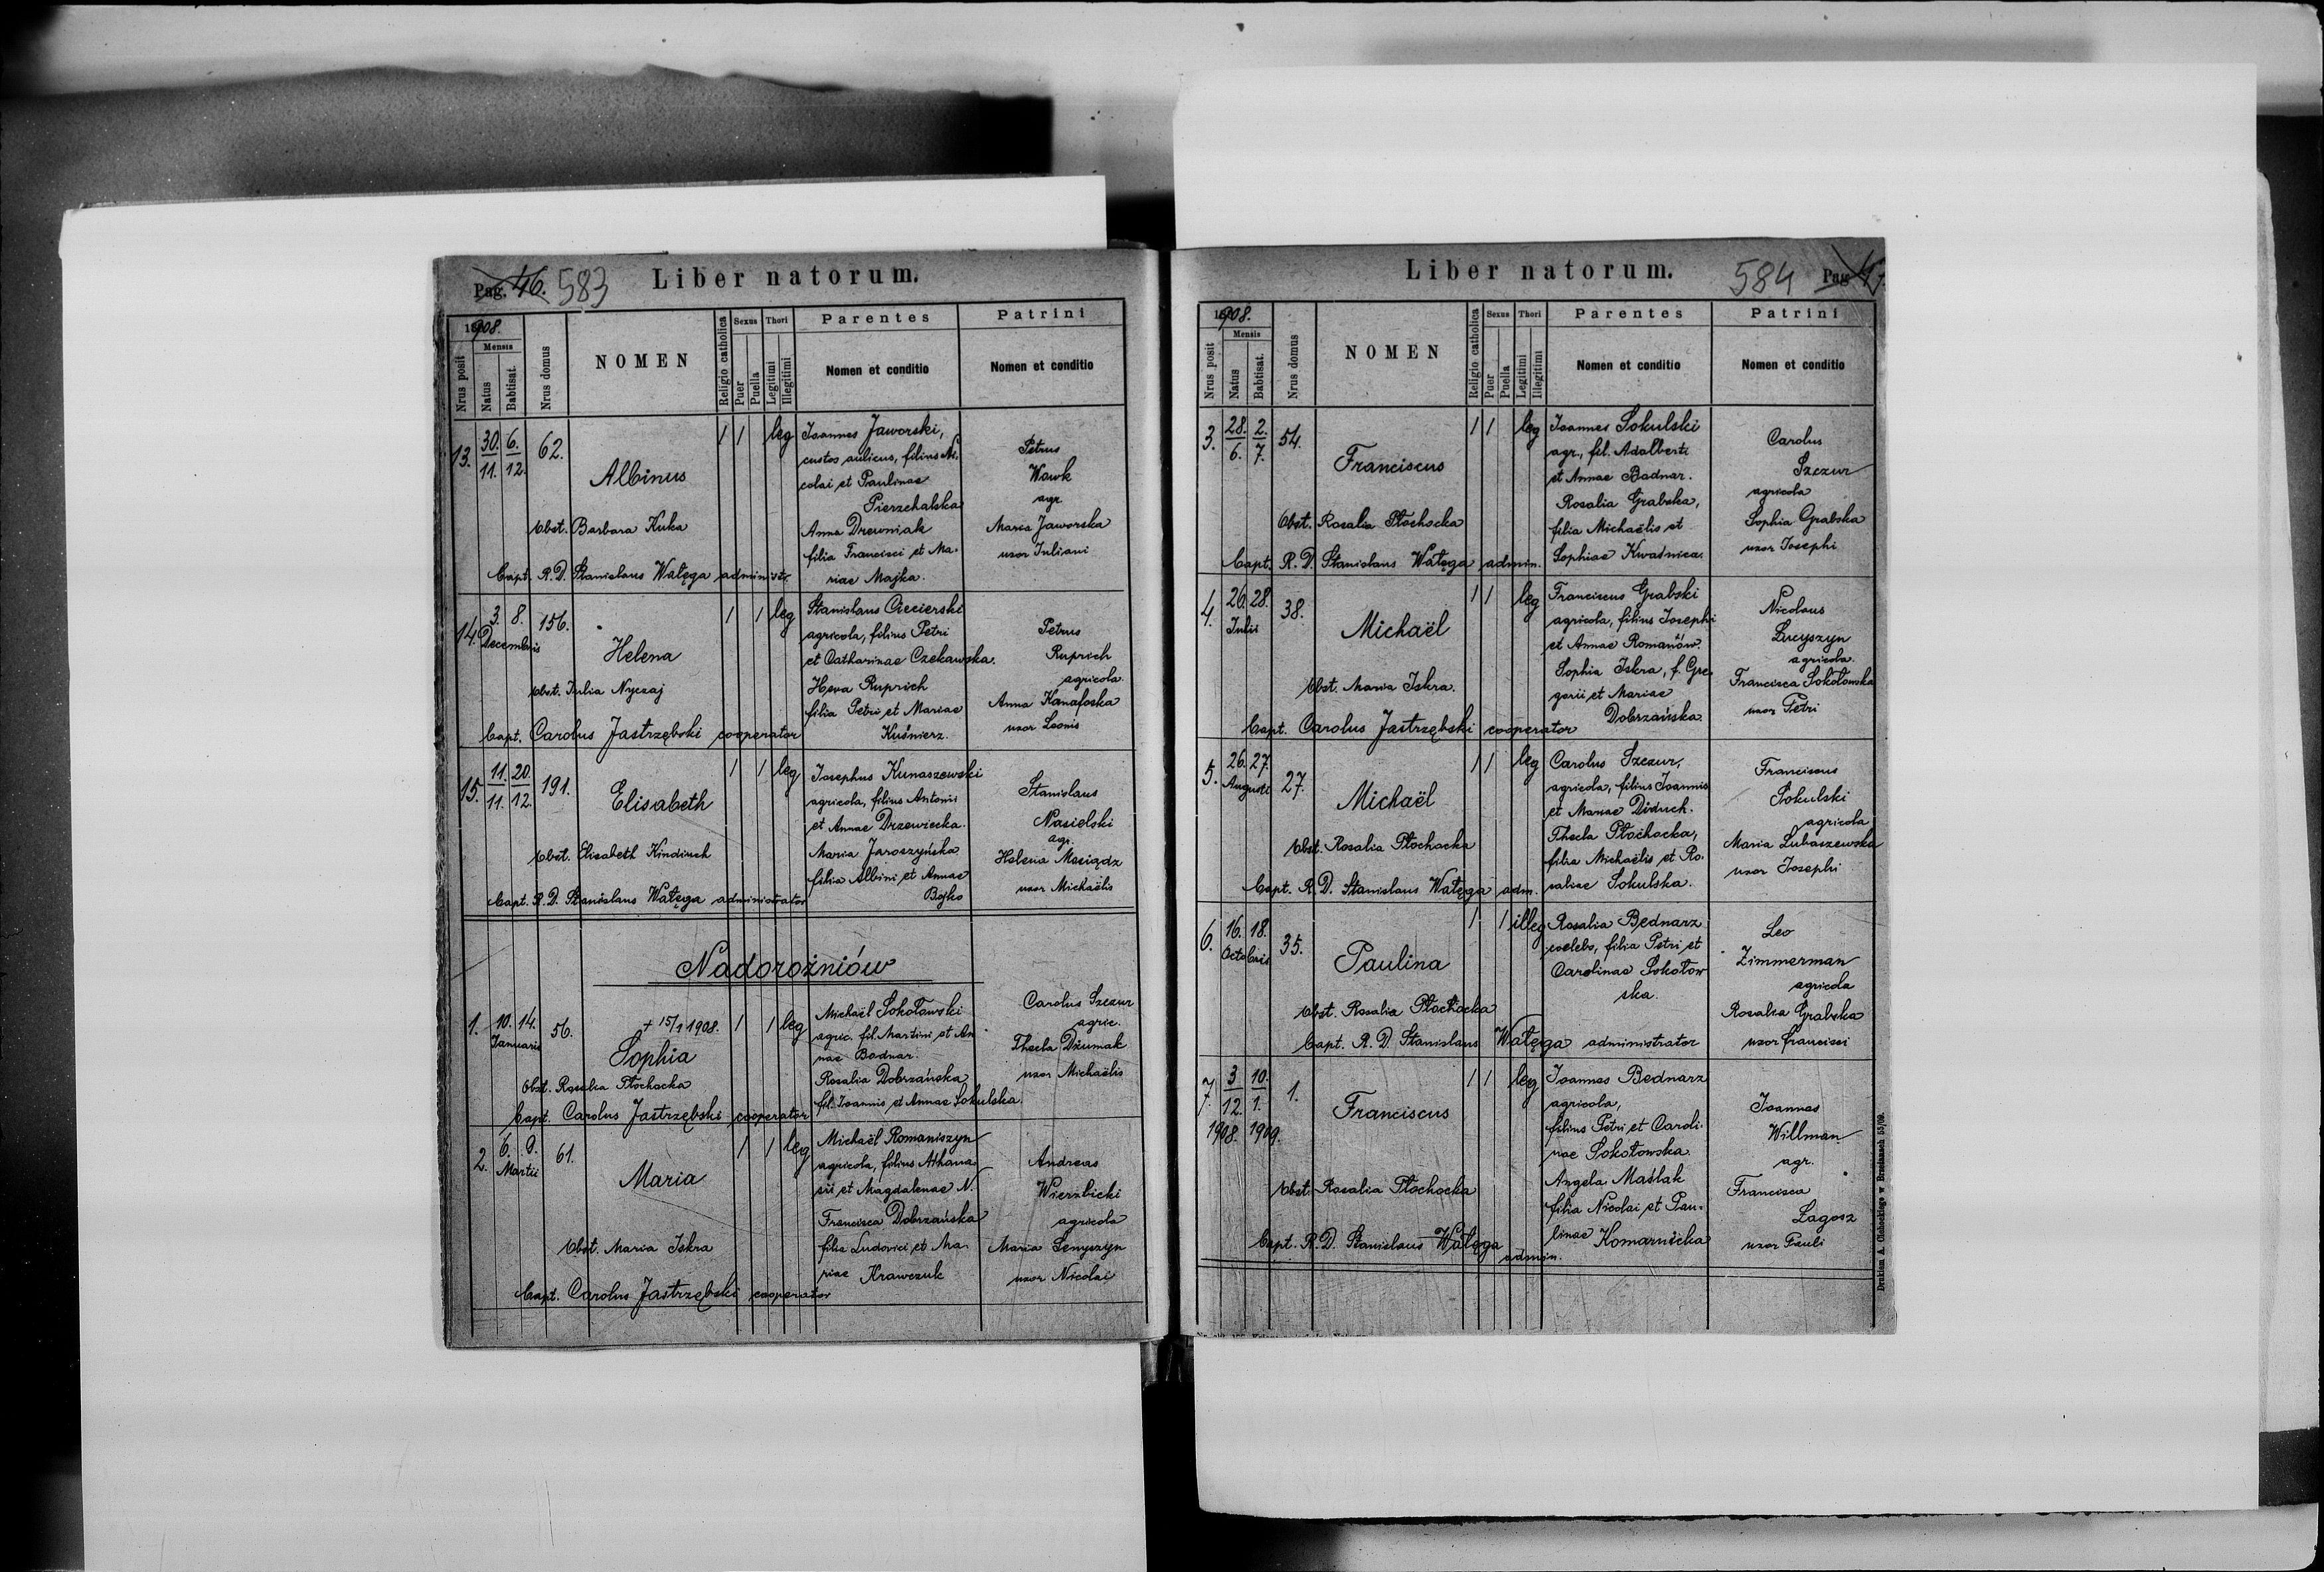 Pag. 46. 583 Liber natorum.
1908.
Nrus posit
Mensis
Natus
Babtisat.
Nrus domus
NOMEN
Religio catholica
Sexus
Puer
Puella
Thori
Legitimi
Illegitimi
Parentes
Nomen et conditio
Patrini
Nomen et conditio
13. 30./11. 6./12. 62.
Albinus
1 1 leg
Obst. Barbara Kuka
Bapt. R. D. Stanislaus Wałęga administr.
Joannes Jaworski,
custos aulicus, filius Ni-
colai et Paulinae
Pierzchalska
Anna Drewniak
filia Francisci et Ma-
riae Majka.
Petrus
Wowk
agr.
Maria Jaworska
uxor Juliani
14. 3. 8. Decembris 156.
Helena
1 1 leg
Obst. Julia Nyczaj
Bapt. Carolus Jastrzębski cooperator
Stanislaus Ciecierski
agricola, filius Petri
et Catharinae Czekawska.
Heva Ruprich
filia Petri et Mariae
Kuśnierz.
Petrus
Ruprich
agricola.
Anna Kanafoska
uxor Leonis
15. 11./11. 20./12. 191.
Elisabeth
1 1 leg
Obst. Elisabeth Kindiuch
Bapt. R. D. Stanislaus Wałęga administrator
Josephus Kunaszewski
agricola, filius Antonii
et Annae Drzewiecka.
Maria Jaroszyńska
filia Albini et Annae
Bojko
Stanislaus
Nasielski
agr.
Helena Mosiądz
uxor Michaëlis
Nadorożniów
1. 10. 14. Januarii 56.
+ 15/1 1908.
Sophia
1 1 leg
Obst. Rosalia Płochocka
Bapt. Carolus Jastrzębski cooperator
Michaël Sokołowski
agric. fil. Martini et An-
nae Bodnar.
Rosalia Dobrzańska
fil. Joannis et Annae Sokulska.
Carolus Szczur
agric.
Thecla Dżumak
uxor Michaëlis
2. 6. 9. Martii 61.
Maria
1 1 leg
Obst. Maria Iskra
Bapt. Carolus Jastrzębski cooperator
Michaël Romaniszyn
agricola, filius Athana-
sii et Magdalenae N.
Francisca Dobrzańska
filia Ludovici et Ma-
riae Krawczuk
Andreas
Wierzbicki
agricola
Maria Senyszyn
uxor Nicolai
Liber natorum. 584 Pag. 47.
1908.
Nrus posit
Mensis
Natus
Babtisat.
Nrus domus
NOMEN
Religio catholica
Sexus
Puer
Puella
Thori
Legitimi
Illegitimi
Parentes
Nomen et conditio
Patrini
Nomen et conditio
3. 28./6. 2./7. 54.
Franciscus
1 1 leg
Obst. Rosalia Płochocka
Bapt. R. D. Stanislaus Wałęga admin.
Joannes Sokulski
agr., fil. Adalberti
et Annae Bodnar.
Rosalia Grabska,
filia Michaëlis et
Sophiae Kwaśnica.
Carolus
Szczur
agricola
Sophia Grabska
uxor Josephi
4. 26. 28. Julii 38.
Michaël
1 1 leg
Obst. Maria Iskra.
Bapt. Carolus Jastrzębski cooperator
Franciscus Grabski
agricola, filius Josephi
et Annae Romanów.
Sophia Iskra, f. Gre-
gorii et Mariae
Dobrzańska.
Nicolaus
Lucyszyn
agricola.
Francisca Sokołowska
uxor Petri
5. 26. 27. Augusti 27.
Michaël
1 1 leg
Obst. Rosalia Płochocka
Bapt. R. D. Stanislaus Wałęga adm.
Carolus Szczur,
agricola, filius Joannis
et Mariae Diduch.
Thecla Płochocka,
filia Michaëlis et Ro-
saliae Sokulska.
Franciscus
Sokulski
agricola
Maria Lubaszewska
uxor Josephi
6. 16. 18. Octobris 35.
Paulina
1 1 illeg
Obst. Rosalia Płochocka
Bapt. R. D. Stanislaus Wałęga administrator
Rosalia Bednarz
coelebs, filia Petri et
Carolinae Sokołow
ska.
Leo
Zimmerman
agricola
Rosalia Grabska
uxor francisci
7. 3/12. 1908. 10./1. 1909. 1.
Franciscus
1 1 leg
Obst. Rosalia Płochocka
Bapt. R. D. Stanislaus Wałęga admin.
Joannes Bednarz
agricola,
filius Petri et Caroli-
nae Sokołowska.
Angela Maślak
filia Nicolai et Pau-
linae Komarnicka
Joannes
Willman
agr.
Francisca
Łagosz
uxor Pauli
Drukiem A. Cichockiego w Brzeżanach 55/09.